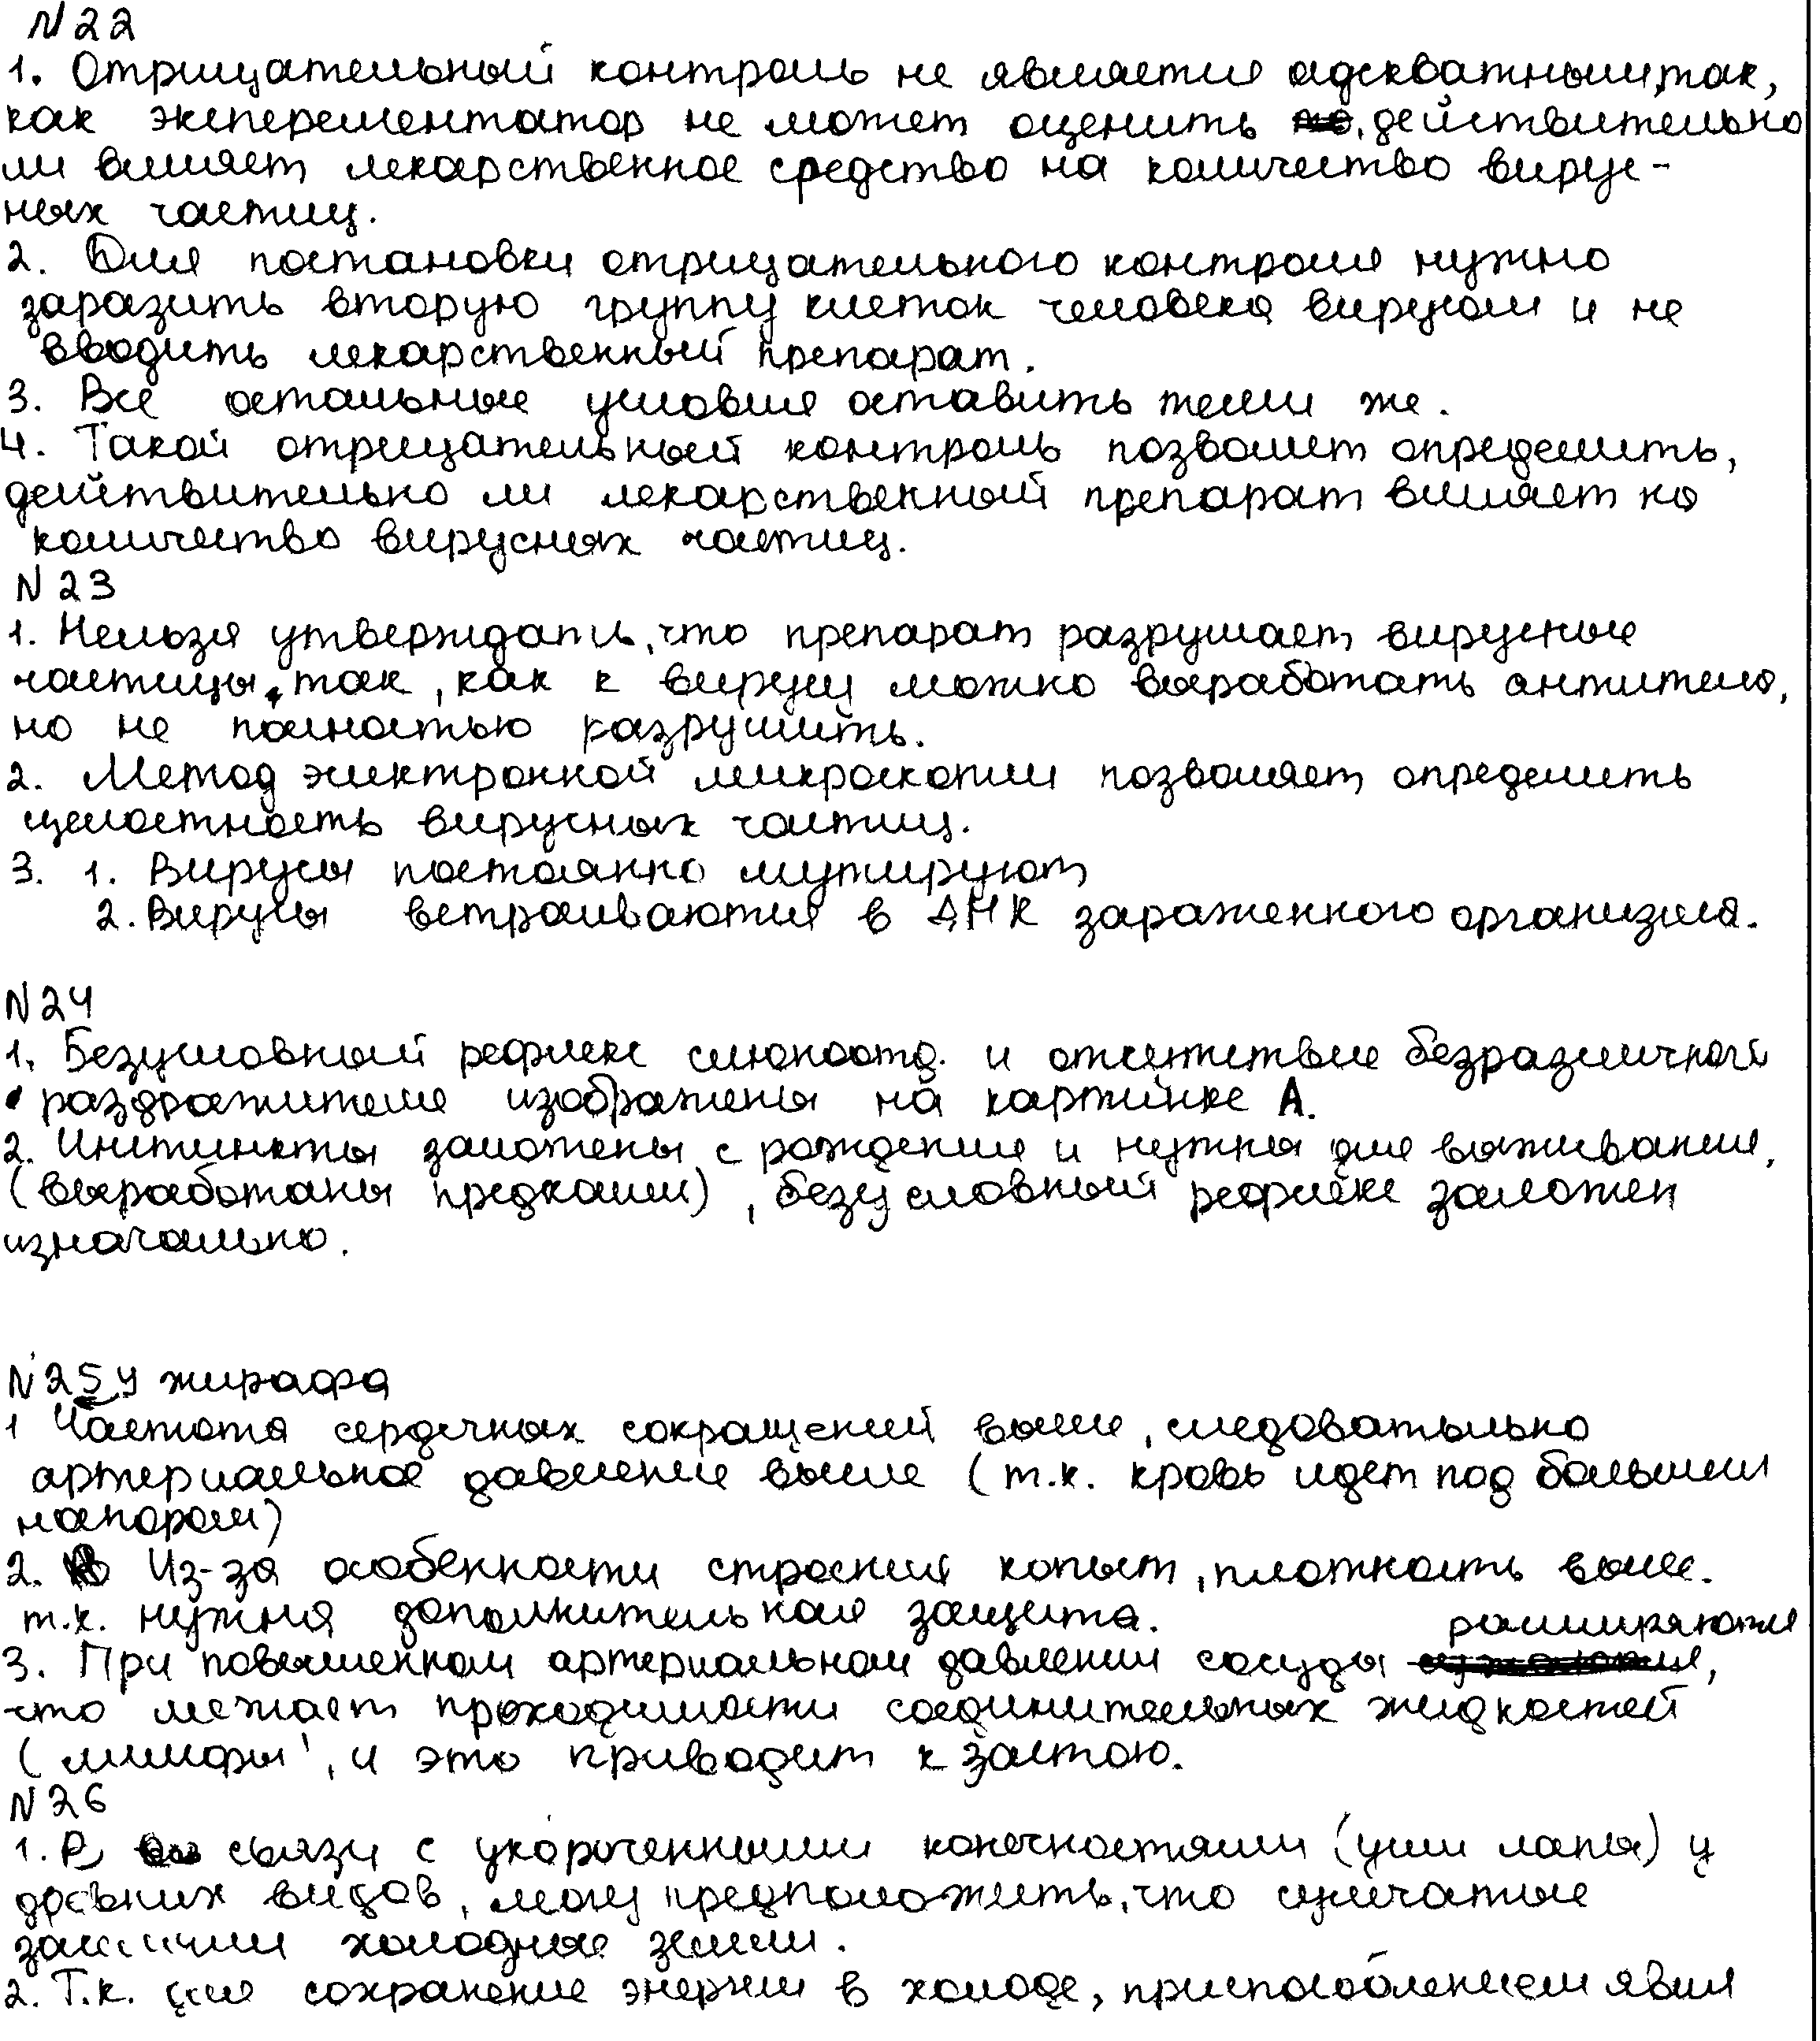 N22
1. Отрицательный контроль не является адекватным, так,
как эксперементатор не может оценить действительно
ли влияет лекарственное средство на количество вирус-
ных частиц.
2. Для постановки отрицательного контроля нужно
заразить вторую группу клеток человека вирусом и не
вводить лекарственный препарат.
3. Все остальные условия оставить теми же.
4. Такой отрицательный контроль позволит определить,
действительно ли лекарственный препарат влияет на
количество вирусных частиц.
N23
1. Нельзя утверждать, что препарат разрушает вирусные
частицы, так, как к вирусу можно выработать антитела,
но не полностью разрушить.
2. Метод электронной микроскопии позволяет определить
целостность вирусных частиц.
3. 1. Вирусы постоянно мутируют
2. Вирусы встраиваются в ДНК зараженного организма.
N24
1. Безусловный рефлекс и отсутствие безразличного
раздражителя изображены на картинке А.
2. Инстинкты заложены с рождения и нужны для выживания,
(выработаны предками), безусловный рефлекс заложен
изначально.
N25 У жирафа
1 Частота сердечных сокращений выше, следовательно
артериальное давление выше (т.к. кровь идет под большим
напором)
2. Из-за особенности строения копыт, плотность выше.
т.к. нужна дополнительная защита.
расширяются
3. При повышенном артериальном давлении сосуды,
что мешает проходимости соединительных жидкостей
(лимфы), и это приводит к застою.
N26
1. В связи с укороченными конечностями (уши лапы) у
древних видов, могу предположить, что сумчатые
заселили холодные земли.
2. Т.к. для сохранение энергии в холоде, приспособлением явил